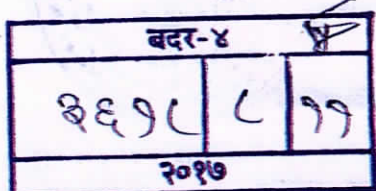 बदर-४
३६१८ ८ ११
२०१७